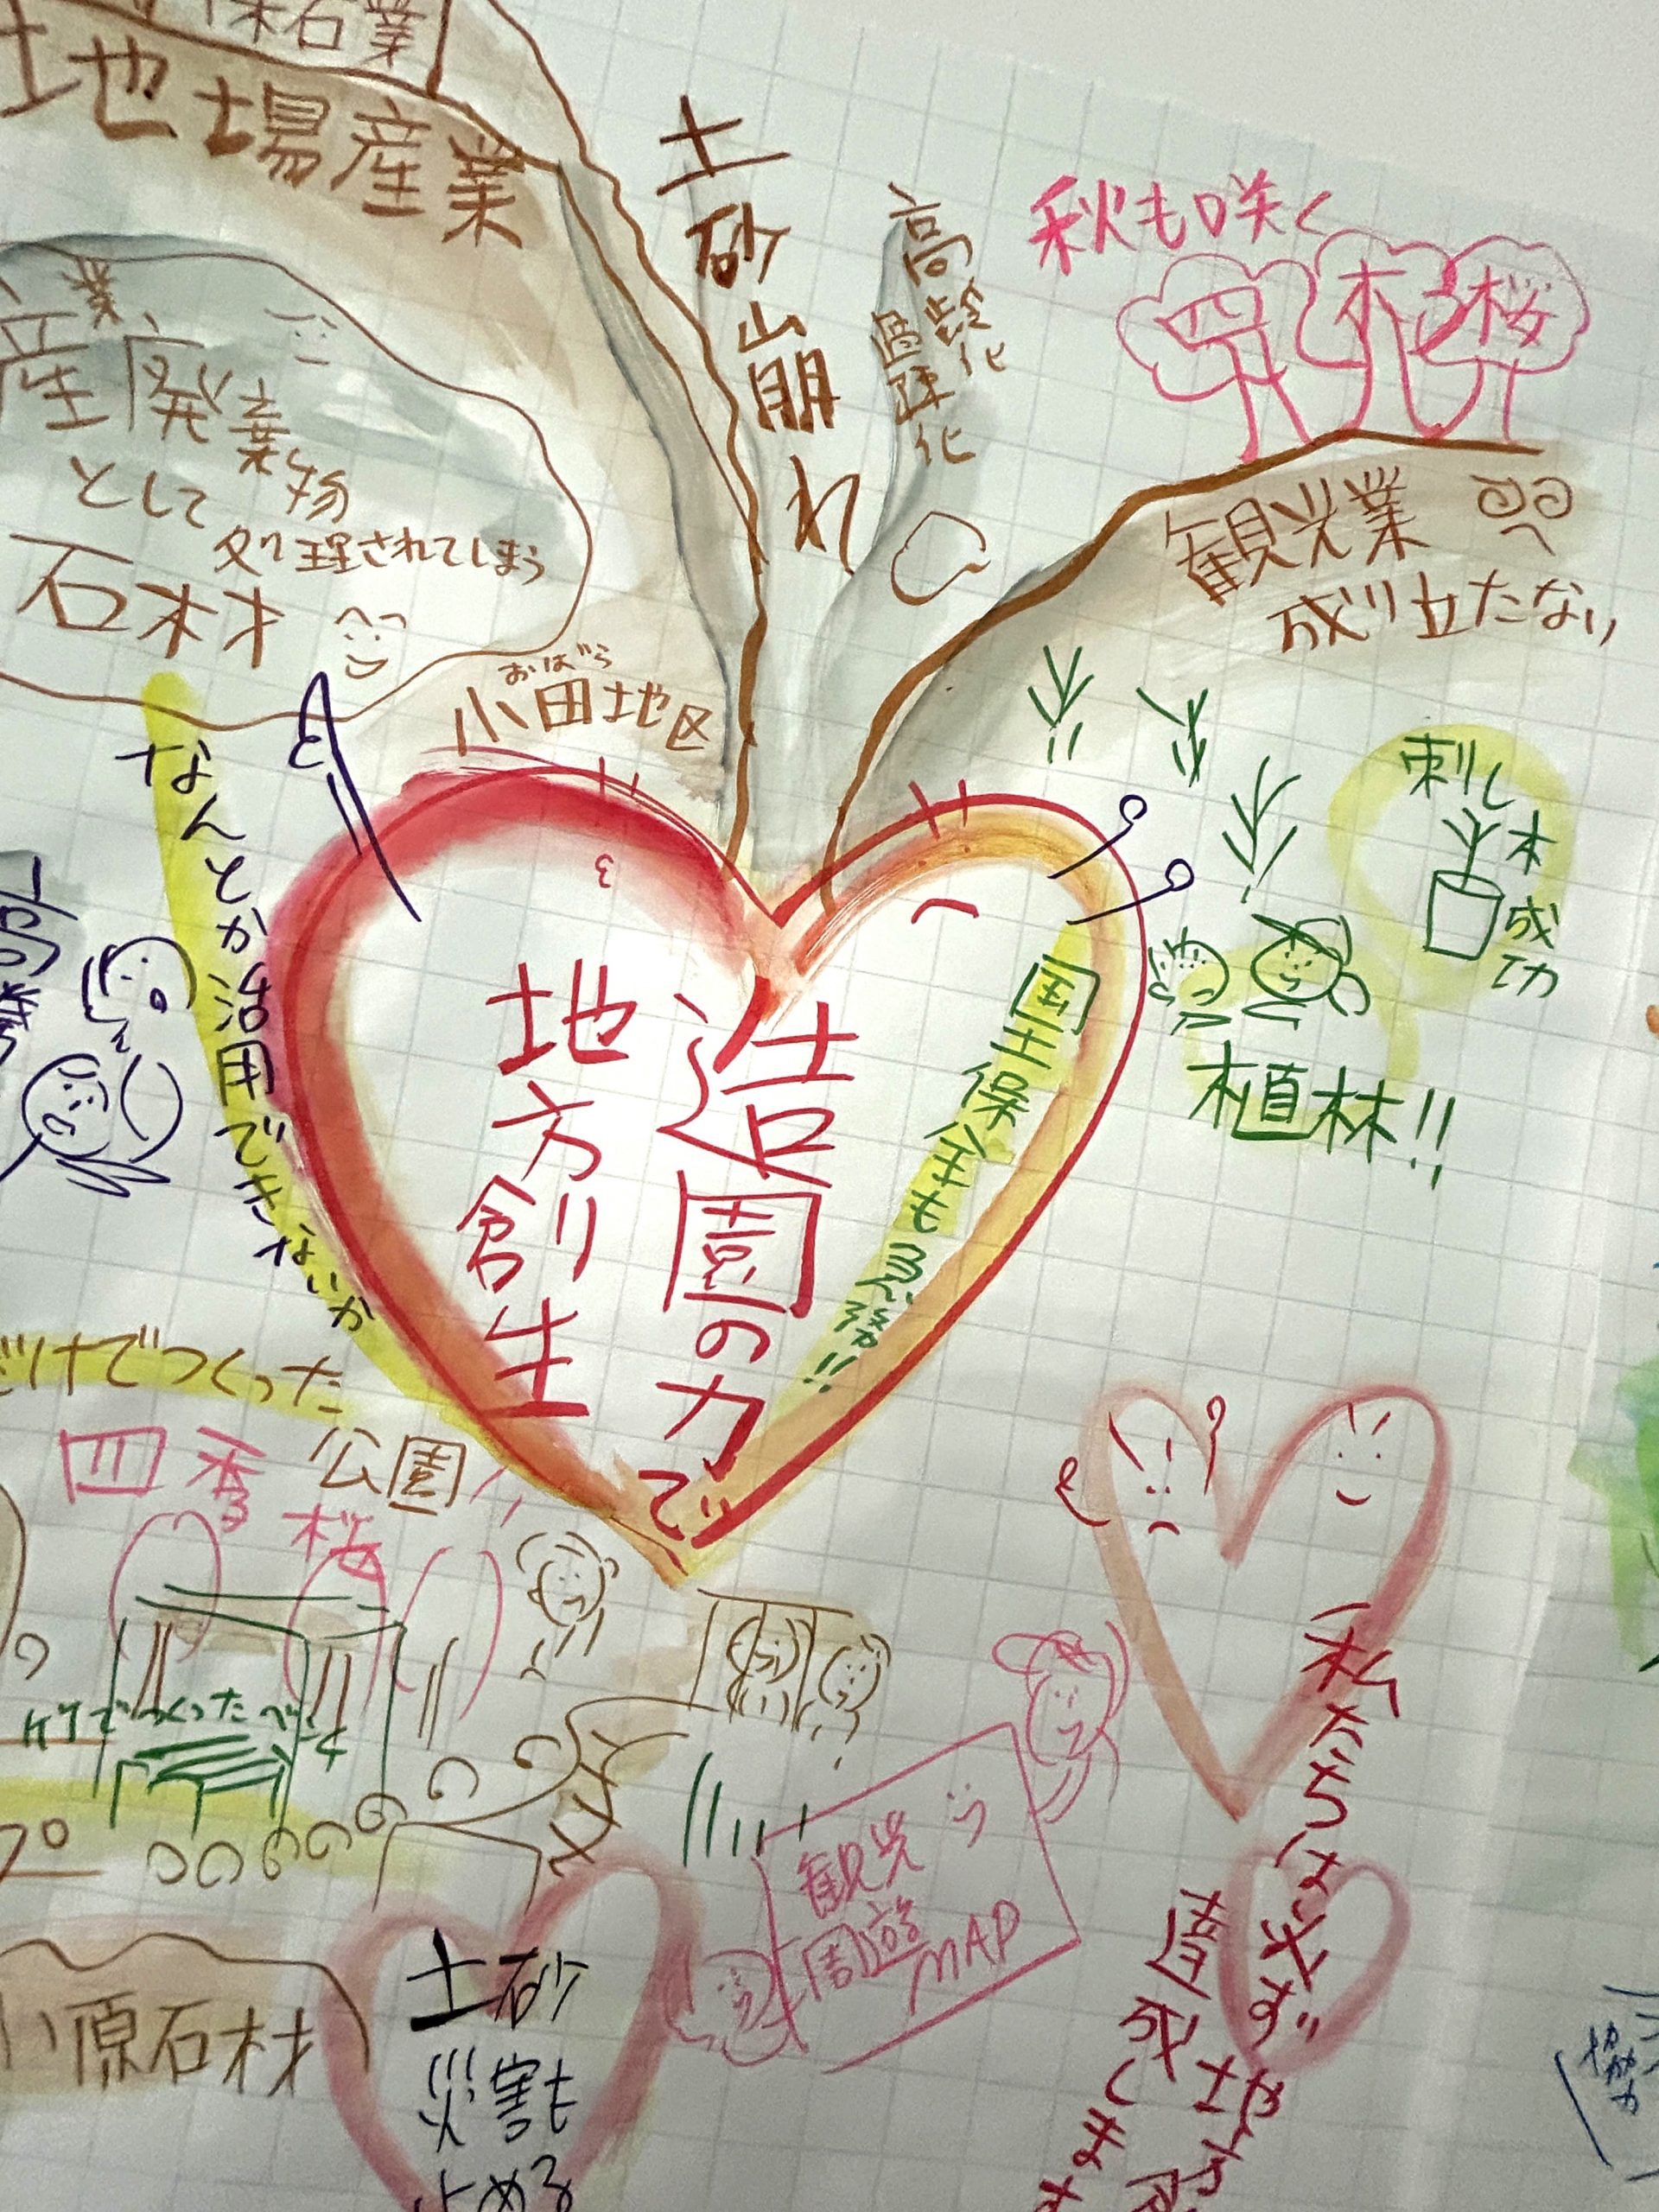 採石業
地場産業
土砂崩れ
高齢化
過疎化
秋も咲く
四季桜
観光業
成り立たない
産業
廃棄物
として
処理されてしまう
石材
おばら
小田地区
なんとか活用できないか
刺し木成功
植林!!
国土保全も急務!!
造園の力で
地方創生
だけでつくった
公園
四季桜
竹でつくったベンチ
観光
周遊
MAP
小原石材
土砂
災害も
止める
私たちは必ず
達成します
協力